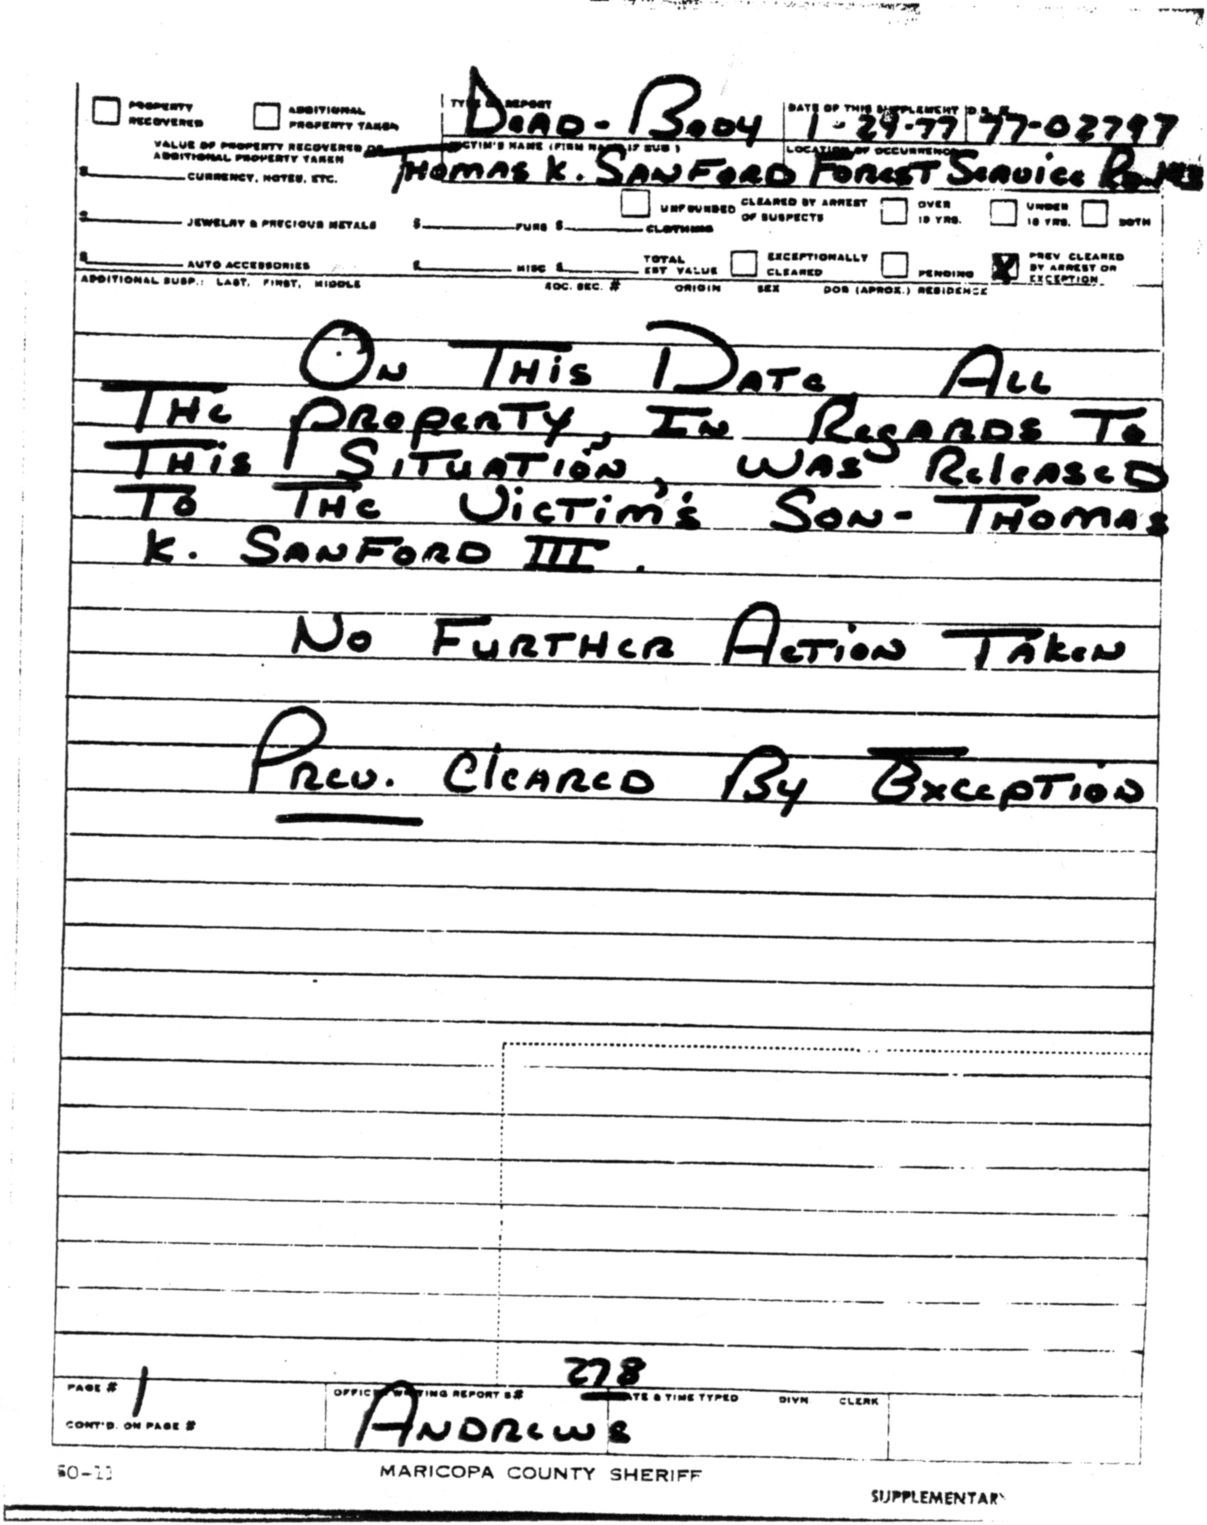 PROPERTY RECOVERED
ADDITIONAL PROPERTY TAKEN
TYPE OF REPORT
DEAD-BODY
DATE OF THIS SUPPLEMENT D.R. #
1-29-77 77-02797
VALUE OF PROPERTY RECOVERED OR
ADDITIONAL PROPERTY TAKEN
VICTIM'S NAME (FIRM NAME IF BUS)
LOCATION OF OCCURRENCE
THOMAS K. SANFORD FOREST SERVICE
$ CURRENCY, NOTES, ETC.
UNFOUNDED CLEARED BY ARREST OF SUSPECTS OVER 18 YRS. UNDER 18 YRS. BOTH
$ JEWELRY & PRECIOUS METALS $ FURS $ CLOTHING
$ AUTO ACCESSORIES $ MISC $ TOTAL EST VALUE EXCEPTIONALLY CLEARED PENDING X PREV CLEARED BY ARREST OR EXCEPTION
ADDITIONAL SUSP.: LAST, FIRST, MIDDLE SOC. SEC. # ORIGIN SEX DOB (APROX.) RESIDENCE
ON THIS DATE ALL
THE PROPERTY, IN REGARDS TO
THIS SITUATION, WAS RELEASED
TO THE VICTIM'S SON- THOMAS
K. SANFORD III.
NO FURTHER ACTION TAKEN
PREV. CLEARED BY EXCEPTION
278
PAGE # 1 OFFICER WRITING REPORT S# DATE & TIME TYPED DIVN CLERK
CONT'D. ON PAGE # ANDREWS
60-11 MARICOPA COUNTY SHERIFF
SUPPLEMENTARY